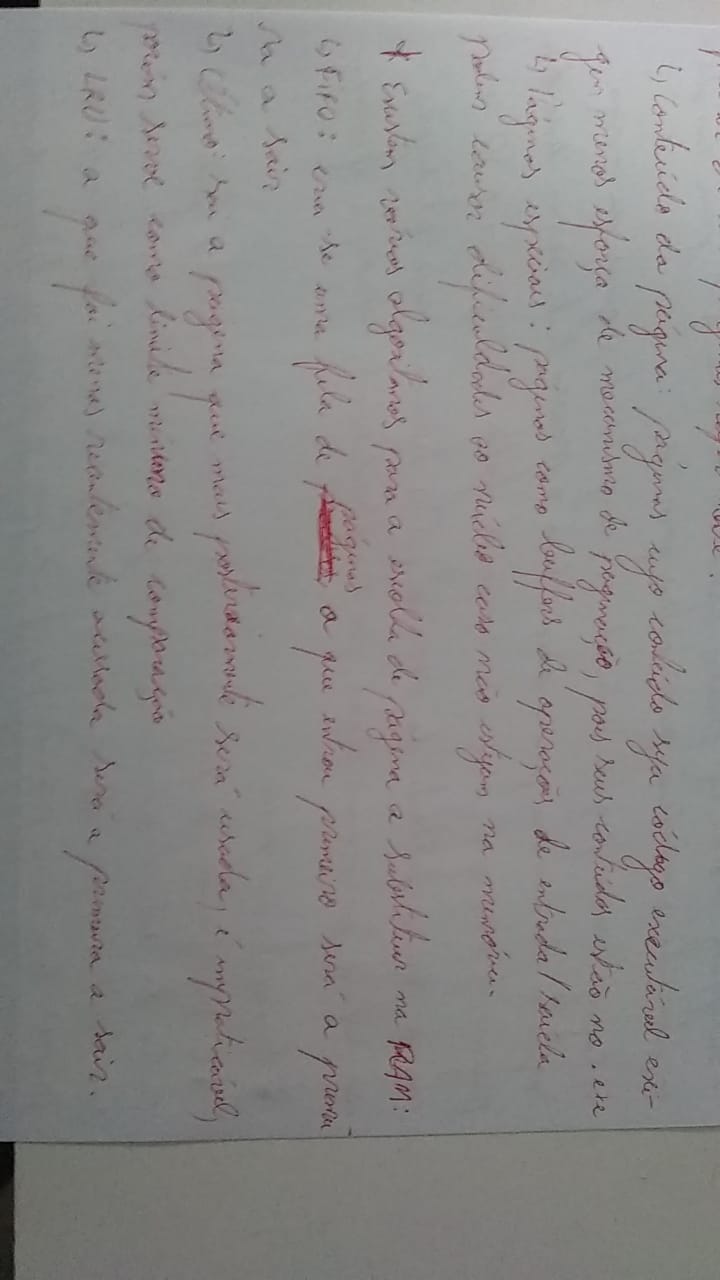 ↳ Conteúdo da página: páginas cujo conteúdo seja código executável exi-
gem menos esforço de mecanismo de paginação, pois seus conteúdos estão no .exe
↳ Páginas especiais: páginas como buffers de operações de entrada/saída
podem causar dificuldades ao núcleo caso não estejam na memória.
* Existem vários algoritmos para a escolha de página a substituir na RAM:
↳ FIFO: cria-se uma fila de páginas a que entrou primeiro será a primei
ra a sair
↳ Ótimo: sai a página que mais posteriormente será usada, é impraticável,
porém serve como limite mínimo de comparação
↳ LRU: a que foi menos recentemente acessada será a primeira a sair.